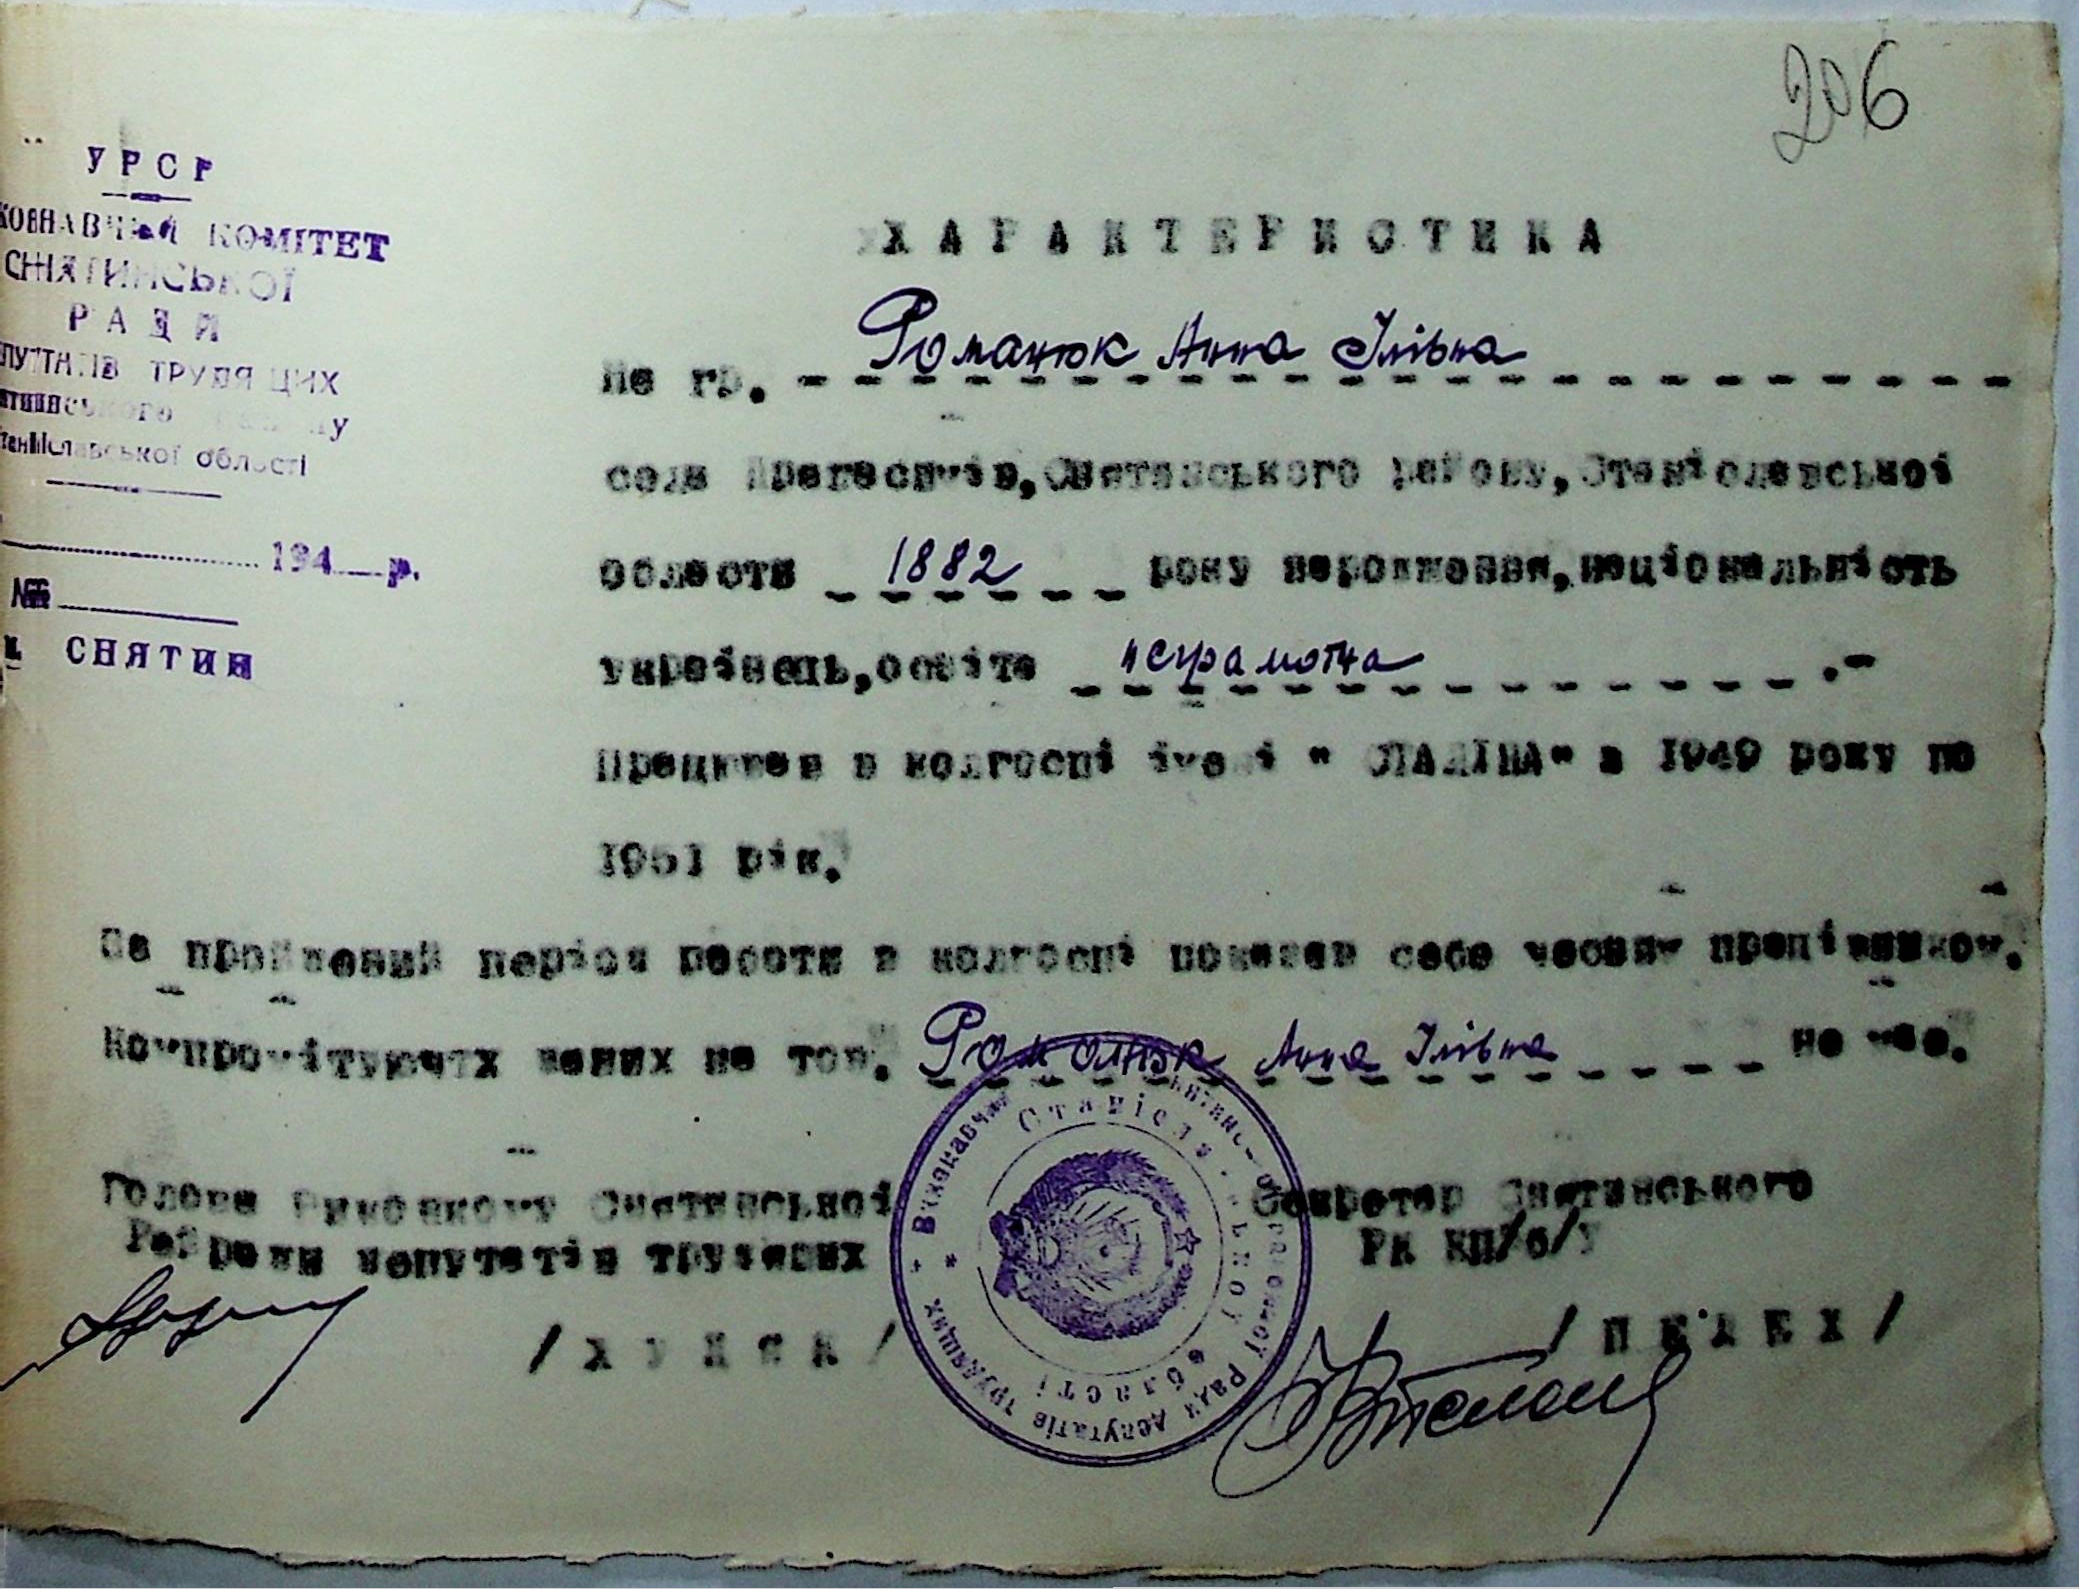 206
УРСР
КОНАВЧИЙ КОМІТЕТ
СНЯТИНСЬКОЇ
РАДИ
ПУТАТІВ ТРУДЯЩИХ
ятинського району
таніславської області
194 р.
№
м. СНЯТИН
ХАРАКТЕРИСТИКА
На гр. Романюк Анна Ілівна
села Драгасимів, Снятинського району, Станіславської
області 1882 року народження, національність
українець, освіта неграмотна .-
Працював в колгоспі імені " СТАЛІНА" з 1949 року по
1951 рік.
За пройдений період роботи в колгоспі показав себе чесним працівником.
Компромітуючих даних на тов. Романюк Анна Ілівна не має.
Голова Виконкому Снятинської
Райради депутатів трудящих
Секретар Снятинського
РК КП/б/У
/ ПЕЛЕХ /
Виконавчий Снятинської районної Ради депутатів трудящих
Станіславської області